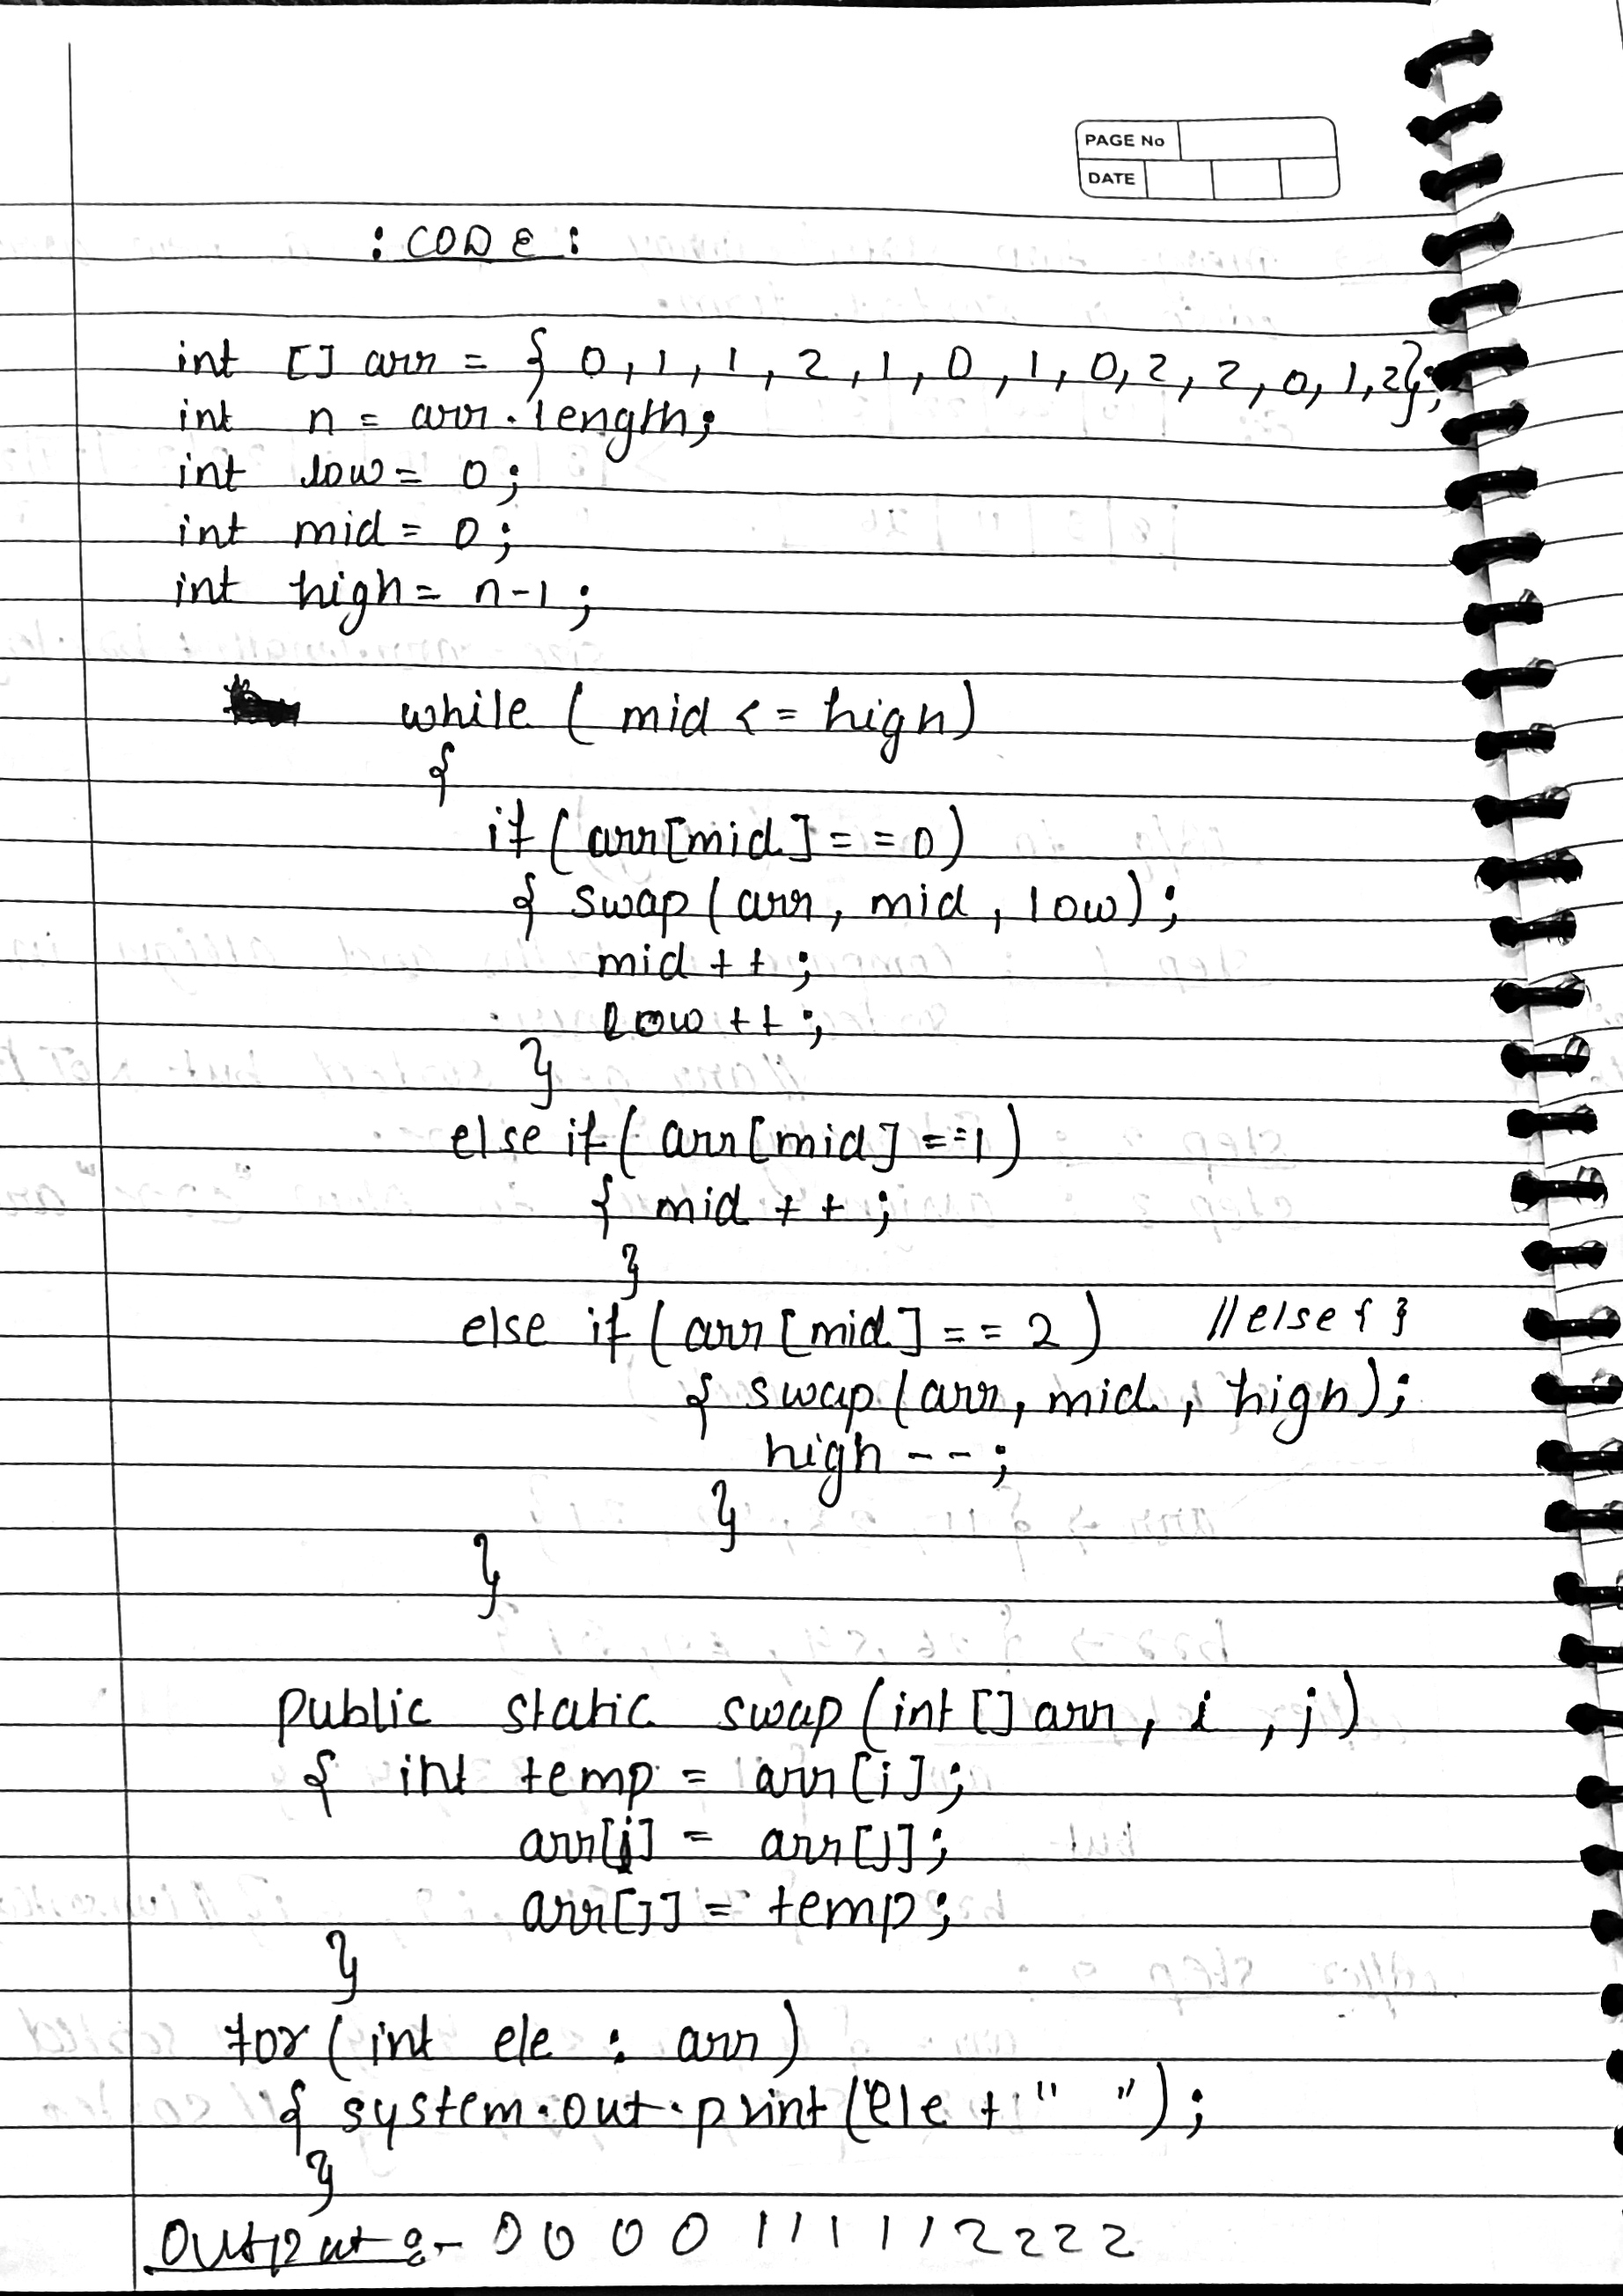 PAGE No
DATE
: CODE :
int [] arr = { 0, 1, 1, 2, 1, 0, 1, 0, 2, 2, 0, 1, 2};
int n = arr.length;
int low = 0;
int mid = 0;
int high = n-1;
while ( mid <= high)
{
if (arr[mid] == 0)
{ swap (arr, mid, low);
mid ++;
low ++;
}
else if ( arr[mid] ==1)
{ mid ++;
}
else if (arr[mid] == 2) //else { }
{ swap (arr, mid, high);
high --;
}
}
public static swap (int [] arr, i, j)
{ int temp = arr[i];
arr[i] = arr[j];
arr[j] = temp;
}
for (int ele : arr)
{ system.out.print (ele + " ");
}
Output :- 0 0 0 0 1 1 1 1 1 2 2 2 2